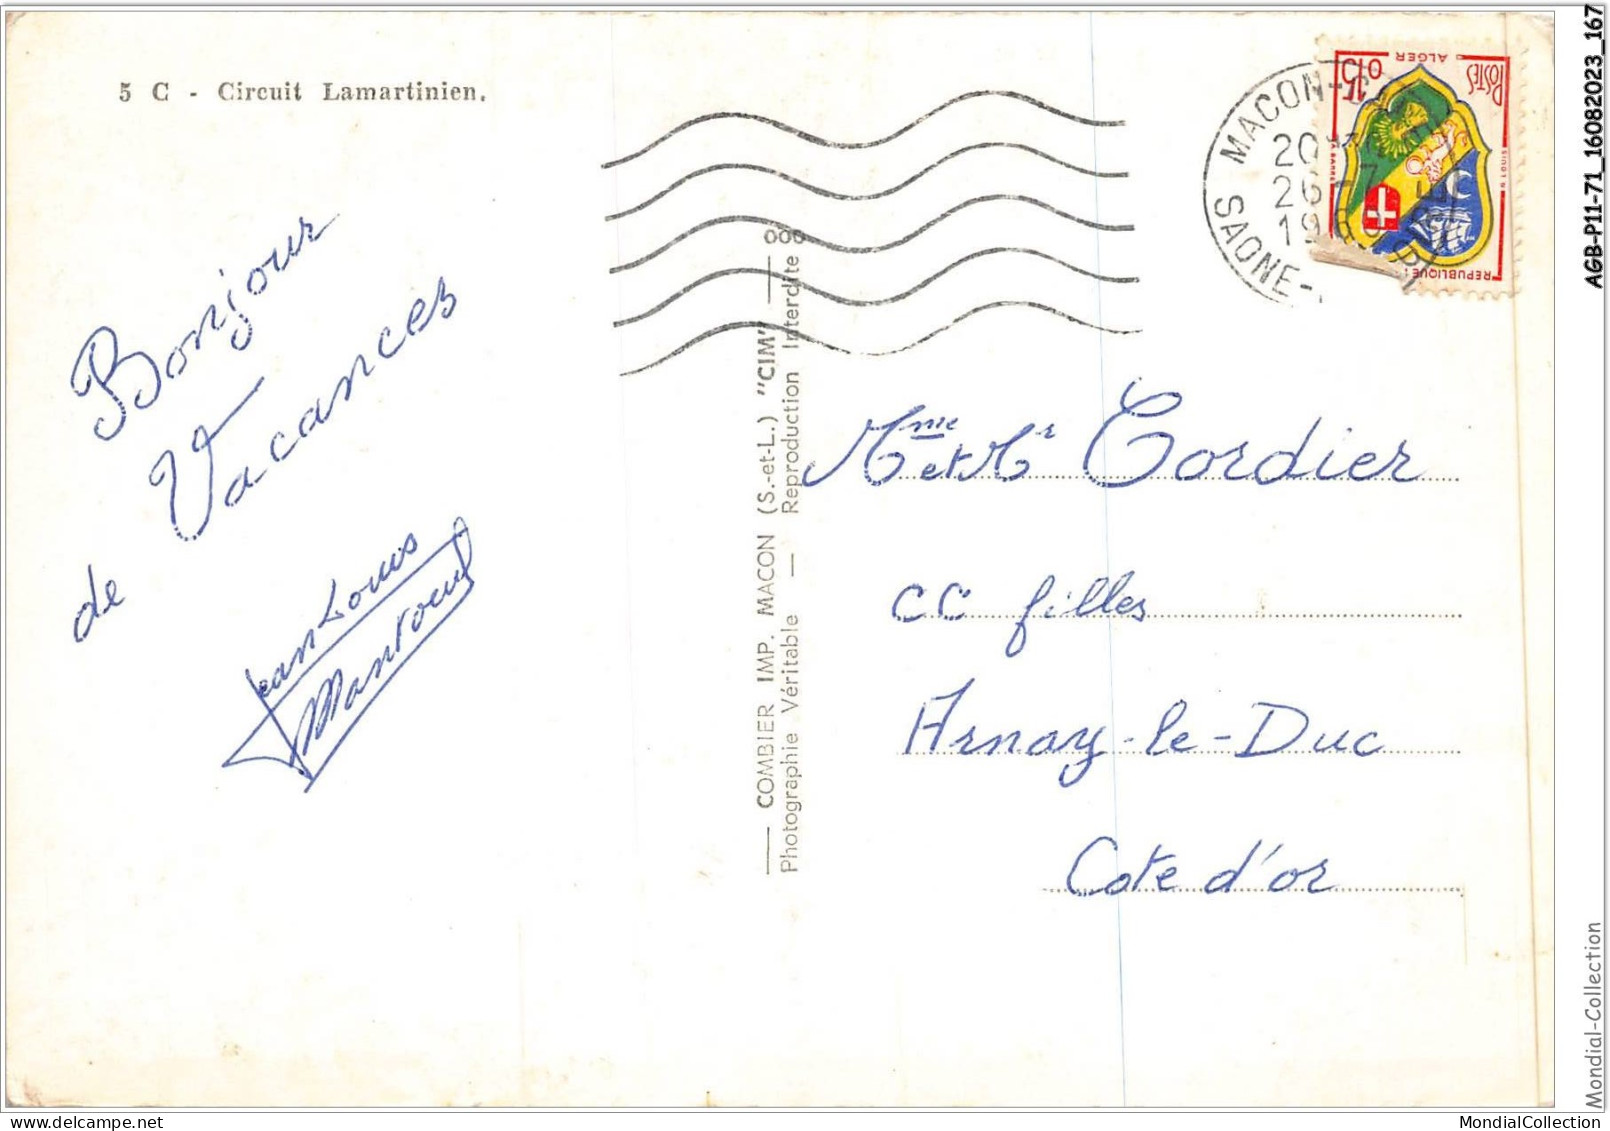 5 C - Circuit Lamartinien.
Bonjour
de Vacances
Jean Louis
COMBIER IMP. MACON (S.-et-L.) "CIM"
Photographie Véritable — Reproduction Interdite
000
MACON
SAONE-
20
26
19
POSTES
ALGER
0,15
REPUBLIQUE
Mme et Mr Cordier
CC filles
Arnay-le-Duc
Cote d'or
AGB-P11-71_16082023_167
Mondial-Collection
MondialCollection